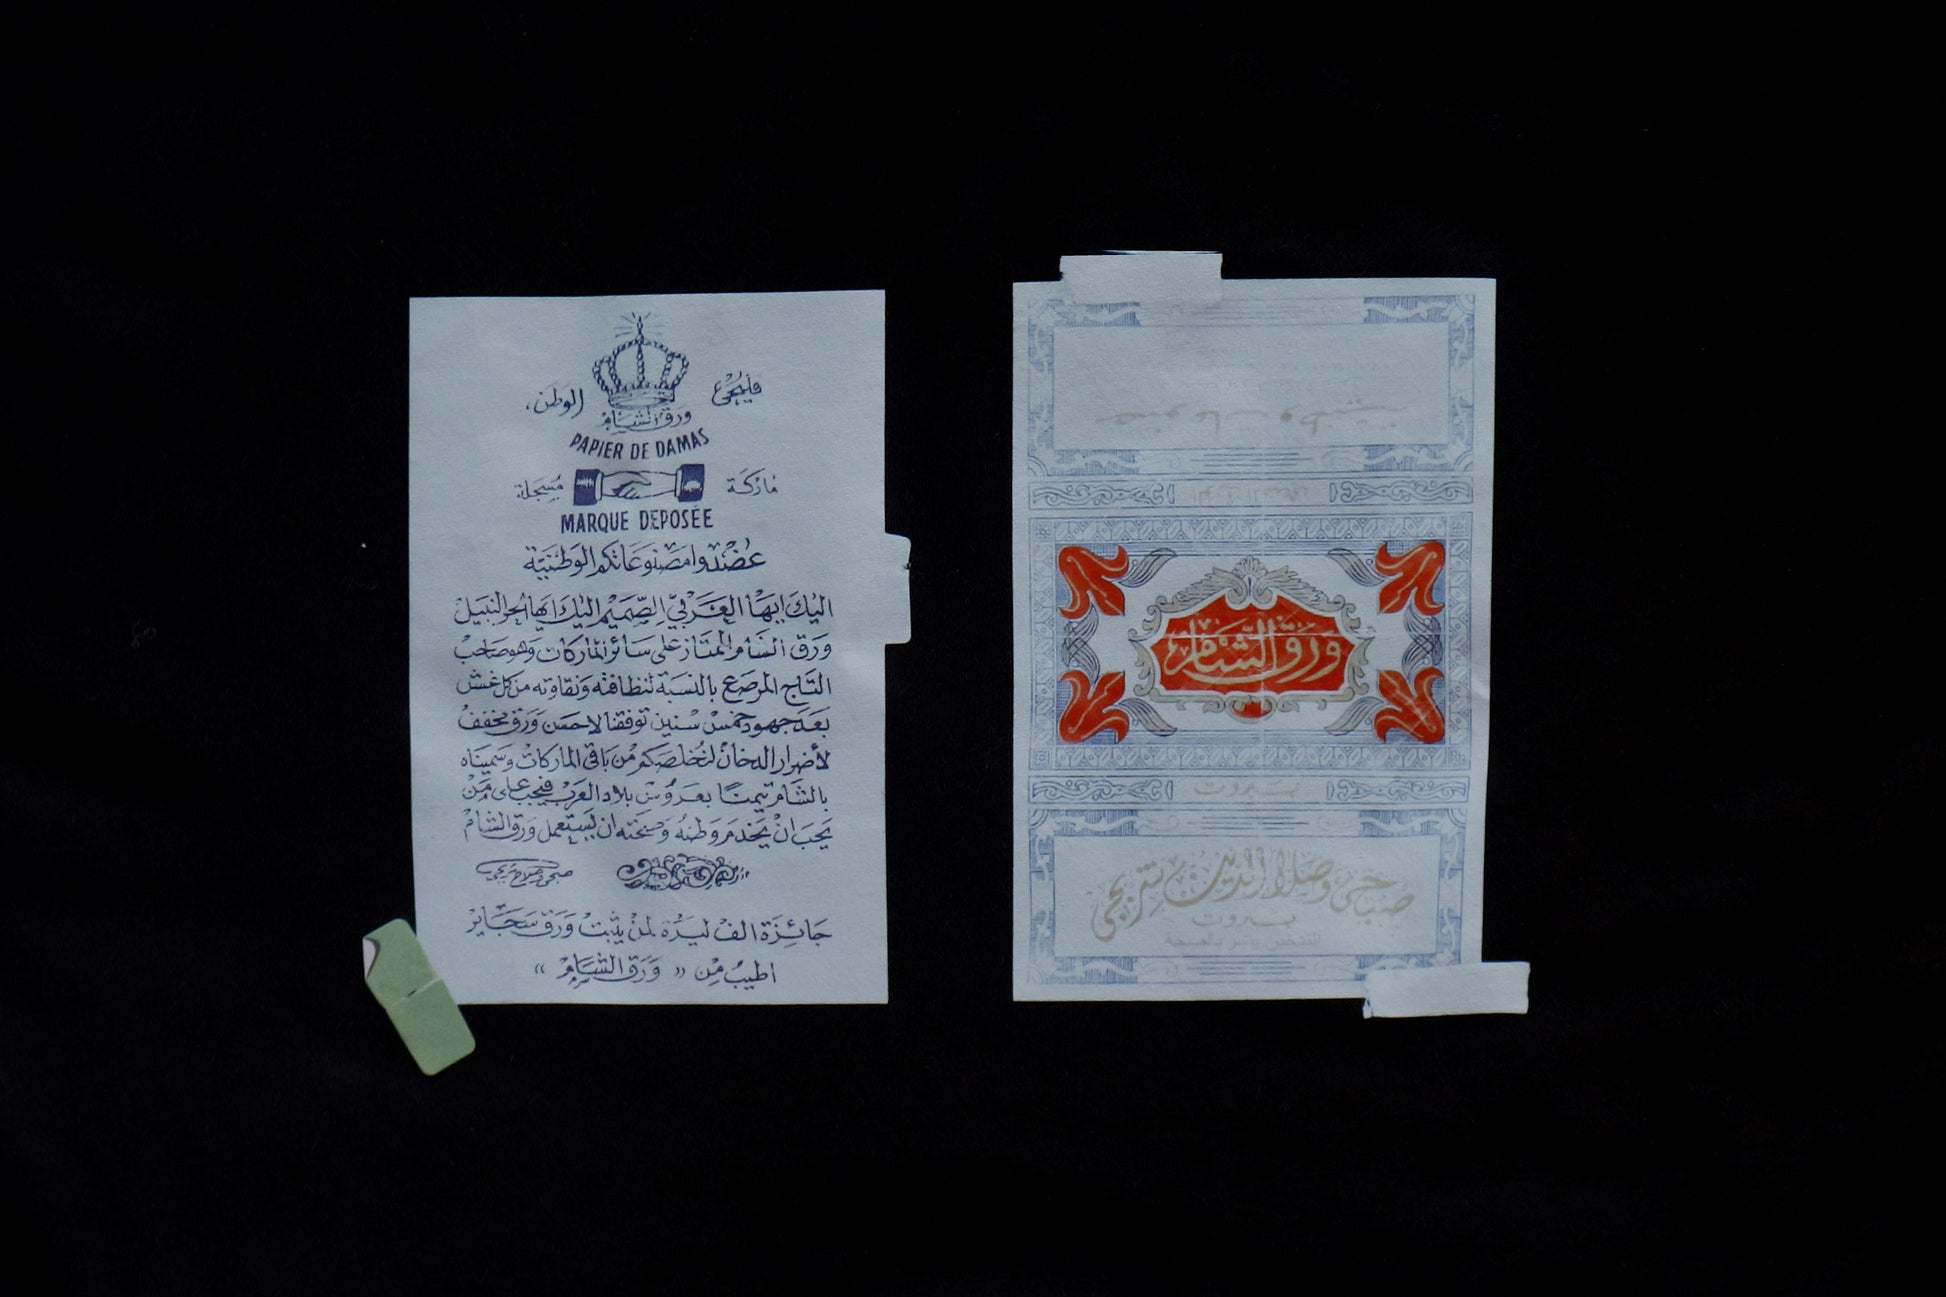 فليحيى الوطن
ورق الشام
PAPIER DE DAMAS
ماركة مسجلة
MARQUE DEPOSÉE
عضدوا مصنوعاتكم الوطنية
اليك ايها العربي الصميم اليك ايها الحر النبيل
ورق الشام الممتاز على سائر الماركات وهو صاحب
التاج المرصع بالنسبة لنظافته ونقاوته من كل غش
بعد جهود خمس سنين توفقنا لاحسن ورق مخفف
لأضرار الدخان لنخلصكم من باقي الماركات وسميناه
بالشام تيمنا بعروس بلاد العرب فيجب على من
يحب ان يخدم وطنه وصحته ان يستعمل ورق الشام
جائزة الف ليرة لمن يثبت ورق سجاير
اطيب من « ورق الشام »
مصنوعات وطنية
ورق الشام
بيروت
صبحي وصلاح الدين شربجي
بيروت
التدخين يضر بالصحة